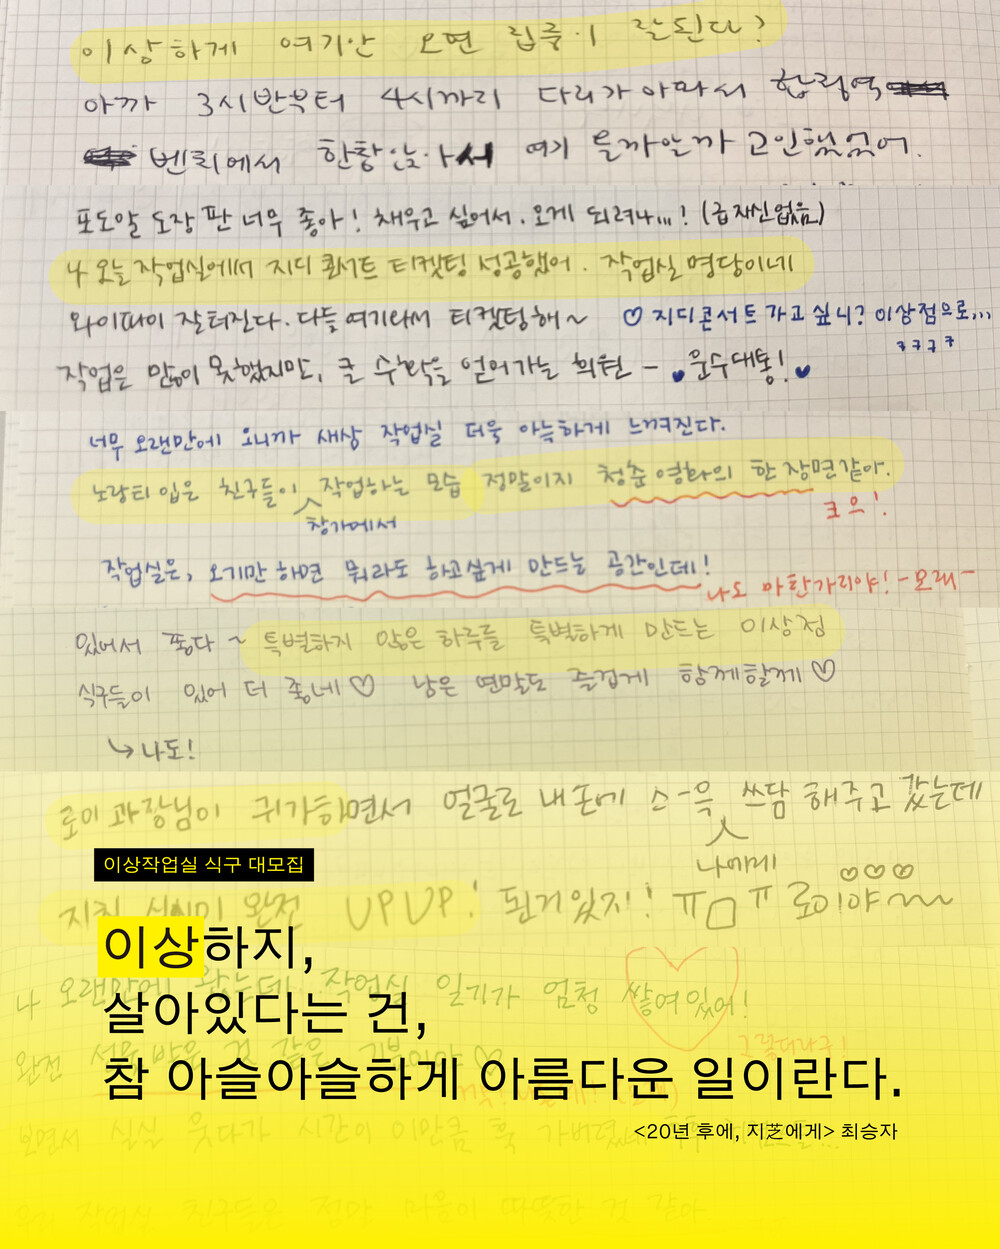 이상하게 여기만 오면 집중이 잘된다?
아까 3시반부터 4시까지 다리가 아파서 합정역
벤치에서 한참 앉아서 여기 올까말까 고민했었어.
포도알 도장 판 너무 좋아! 채우고 싶어서.. 오게 되려나...! (급 자신없음)
나 오늘 작업실에서 지디 콘서트 티켓팅 성공했어. 작업실 명당이네
와이파이 잘터진다. 다들 여기와서 티켓팅해~ ♡ 지디콘서트 가고 싶니? 이상점으로...
ㅋㅋㅋㅋ
작업은 많이 못했지만, 큰 수확을 얻어가는 희원 - 운수대통!
너무 오랜만에 오니까 새삼 작업실 더욱 아늑하게 느껴진다.
노랑티 입은 친구들이 작업하는 모습 정말이지 청춘영화의 한 장면같아.
창가에서
크으!
작업실은, 오기만 하면 뭐라도 하고싶게 만드는 공간인데!
나도 마찬가리야! -모래-
있어서 좋다 ~ 특별하지 않은 하루를 특별하게 만드는 이상점
식구들이 있어 더 좋네♡ 남은 연말도 즐겁게 함께할게♡
↳나도!
로이 과장님이 귀가하면서 얼굴로 내 손에 스-윽 쓰담 해주고 갔는데
나에게
이상작업실 식구 대모집
완전 UPUP! 된거있지! ㅠㅁㅠ 로이야~~
♡♡♡
이상하지,
나 오랜만에 왔는데.. 작업실 일기가 엄청 쌓여있어!
살아있다는 건,
완전 선물 받은 것 같은 기분이야♡
참 아슬아슬하게 아름다운 일이란다.
보면서 실실 웃다가 시간이 이만큼 훅
<20년 후에, 지芝에게> 최승자
우리 작업실 친구들은 정말 마음이 따뜻한 것 같아